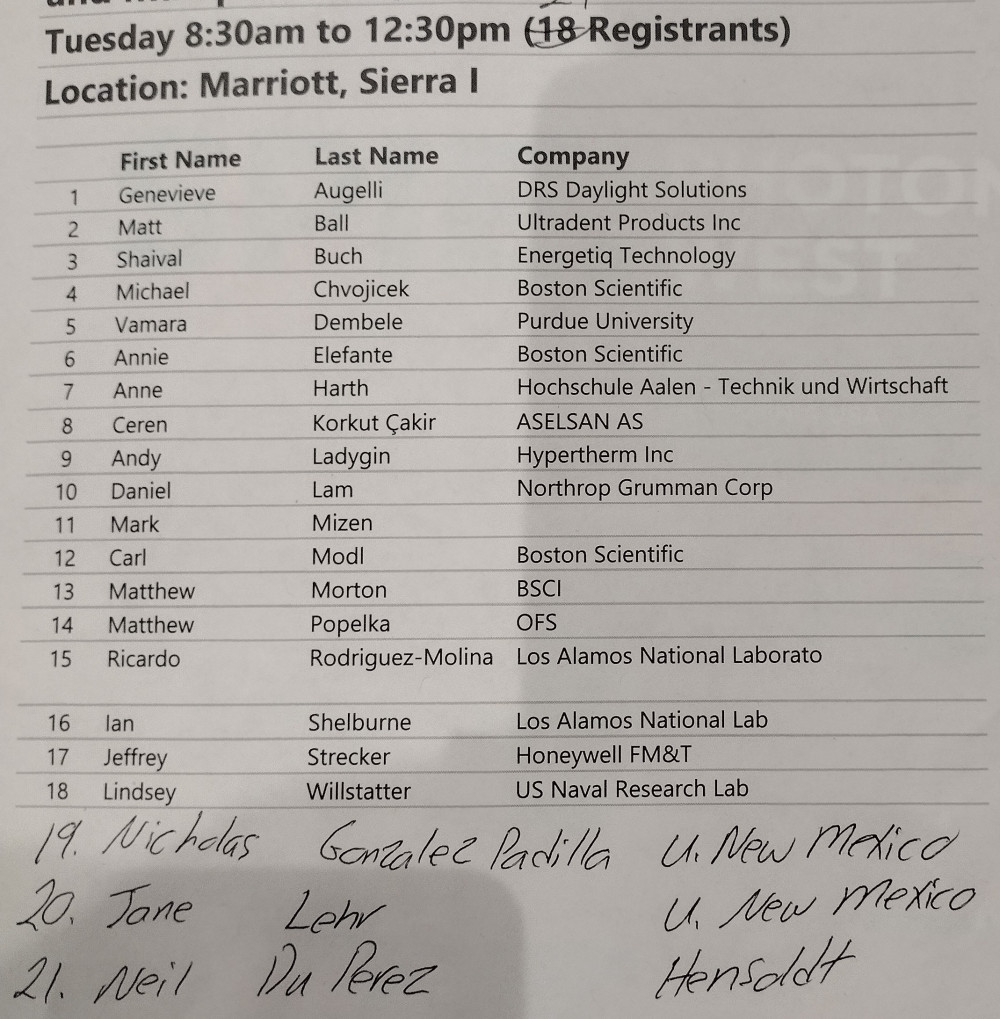 Tuesday 8:30am to 12:30pm (18 Registrants)
Location: Marriott, Sierra I
First Name Last Name Company
1 Genevieve Augelli DRS Daylight Solutions
2 Matt Ball Ultradent Products Inc
3 Shaival Buch Energetiq Technology
4 Michael Chvojicek Boston Scientific
5 Vamara Dembele Purdue University
6 Annie Elefante Boston Scientific
7 Anne Harth Hochschule Aalen - Technik und Wirtschaft
8 Ceren Korkut Çakir ASELSAN AS
9 Andy Ladygin Hypertherm Inc
10 Daniel Lam Northrop Grumman Corp
11 Mark Mizen
12 Carl Modl Boston Scientific
13 Matthew Morton BSCI
14 Matthew Popelka OFS
15 Ricardo Rodriguez-Molina Los Alamos National Laborato
16 Ian Shelburne Los Alamos National Lab
17 Jeffrey Strecker Honeywell FM&T
18 Lindsey Willstatter US Naval Research Lab
19. Nicholas Gonzalez Padilla U. New Mexico
20. Jane Lehr U. New Mexico
21. Neil Du Perez Hensoldt